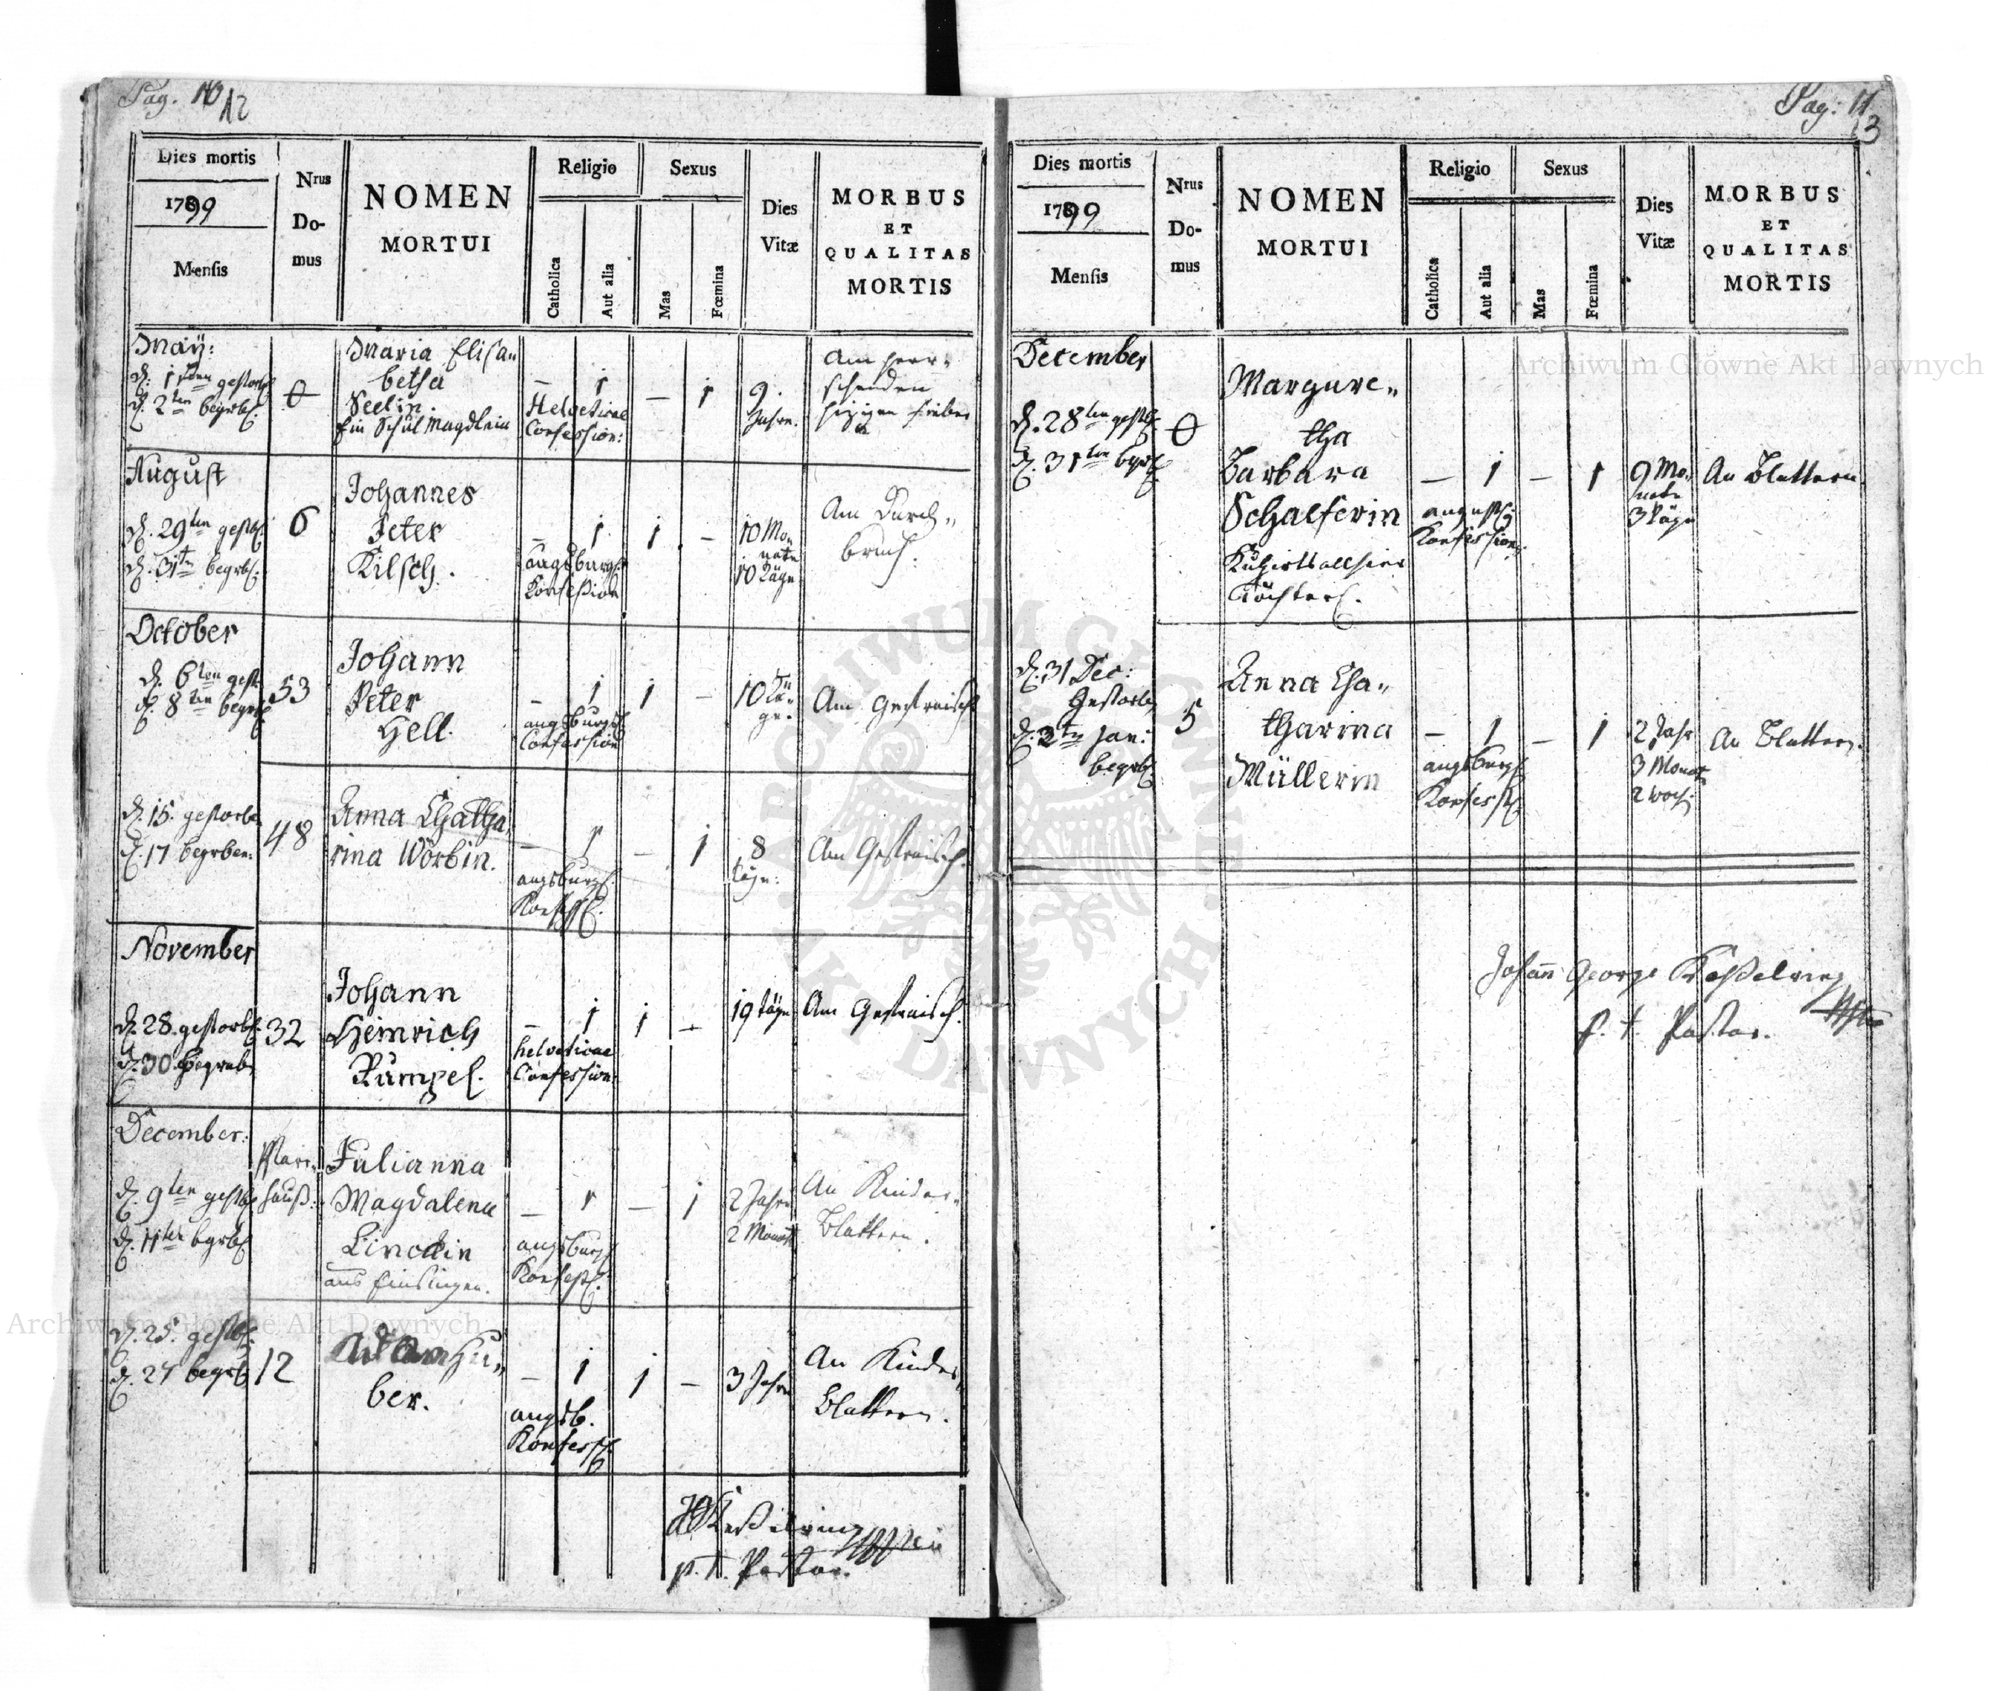 Pag. 10 12
Dies mortis
1799
Mensis
Nrus
Do-
mus
NOMEN
MORTUI
Religio
Catholica
Aut alia
Sexus
Mas
Fœmina
Dies
Vitæ
MORBUS
ET
QUALITAS
MORTIS
May:
d. 1sten gestorb.
d. 2ten begrb.
0
Maria Elisa-
betha
Seelin.
Ein Schul Magdlein
– 1
Helveticae
Confession:
– 1
9.
Jahre.
Am herr-
schenden
hizigen Fieber
August
d. 29ten gestb.
d. 31ten begrb.
6
Johannes
Peter
Kilsch.
– 1
augsburg.
Konfession
1 –
10 Mon
nate
10 Täge
Am Durch-
bruch.
October
d. 6ten gest.
d. 8ten begrb.
53
Johann
Peter
Hell.
– 1
augsburg.
Confession
1 –
10 Tä-
ge.
Am Gefraisch
d. 15. gestorben
d. 17 begrben:
48
Anna Chatha-
rina Wörbin.
– 1
augsburg.
Konfess.
– 1
8
Täge:
Am Gefraisch.
November
d. 28. gestorb.
d. 30. Begrab.
32
Johann
Heinrich
Rumpel.
– 1
helveticae
Confession:
1 –
19 Täge
Am Gefraisch.
December:
d. 9ten gestb.
d. 11ten bgrb.
Pfarr-
hauß:
Julianna
Magdalena
Linckin
aus Einsingen.
– 1
augsburg.
Konfess.
– 1
2 Jahre
2 Monat
An Kinder-
Blattern.
d. 25. gestb.
d. 27 begrb.
12
Adam Hu-
ber.
– 1
augsb.
Konfess.
1 –
3 Jahre
An Kinder-
Blattern.
JGKeßelring
p. t. Pastor.
Pag: 11 13
Dies mortis
1799
Mensis
Nrus
Do-
mus
NOMEN
MORTUI
Religio
Catholica
Aut alia
Sexus
Mas
Fœmina
Dies
Vitæ
MORBUS
ET
QUALITAS
MORTIS
December
d. 28ten gestb.
d. 31ten bgrb.
0
Margare-
tha
Barbara
Schalferin
Töchterl.
– 1
augustb:
Konfession
– 1
9 Mo-
nate
3 Täge
An Blattern.
d. 31 Dec:
Gestorb.
d. 2ten Jan:
begrb.
5
Anna Cha-
tharina
Müllerin
– 1
augsburg.
Konfess.
– 1
2 Jahr
3 Monat
2 Woch:
An Blattern.
Johann George Keßelring
p. t. Pastor.
Archiwum Główne Akt Dawnych
Archiwum Główne Akt Dawnych
ARCHIWUM GŁÓWNE AKT DAWNYCH